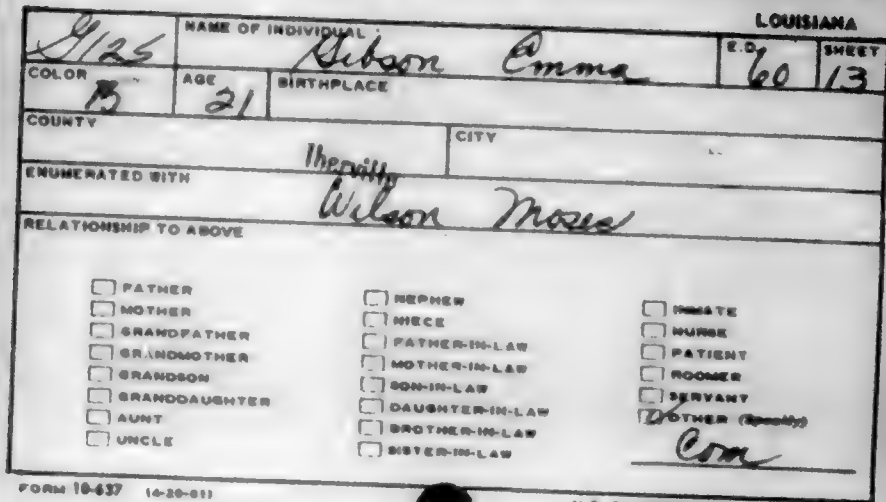 LOUISIANA
G125 NAME OF INDIVIDUAL Gibson Emma E.D. 60 SHEET 13
COLOR B AGE 21 BIRTHPLACE
COUNTY CITY
ENUMERATED WITH Wilson Moses
RELATIONSHIP TO ABOVE
FATHER
MOTHER
GRANDFATHER
GRANDMOTHER
GRANDSON
GRANDDAUGHTER
AUNT
UNCLE
NEPHEW
NIECE
FATHER-IN-LAW
MOTHER-IN-LAW
SON-IN-LAW
DAUGHTER-IN-LAW
BROTHER-IN-LAW
SISTER-IN-LAW
INMATE
NURSE
PATIENT
ROOMER
SERVANT
OTHER (Specify)
Com
FORM 10-637 (6-20-61)